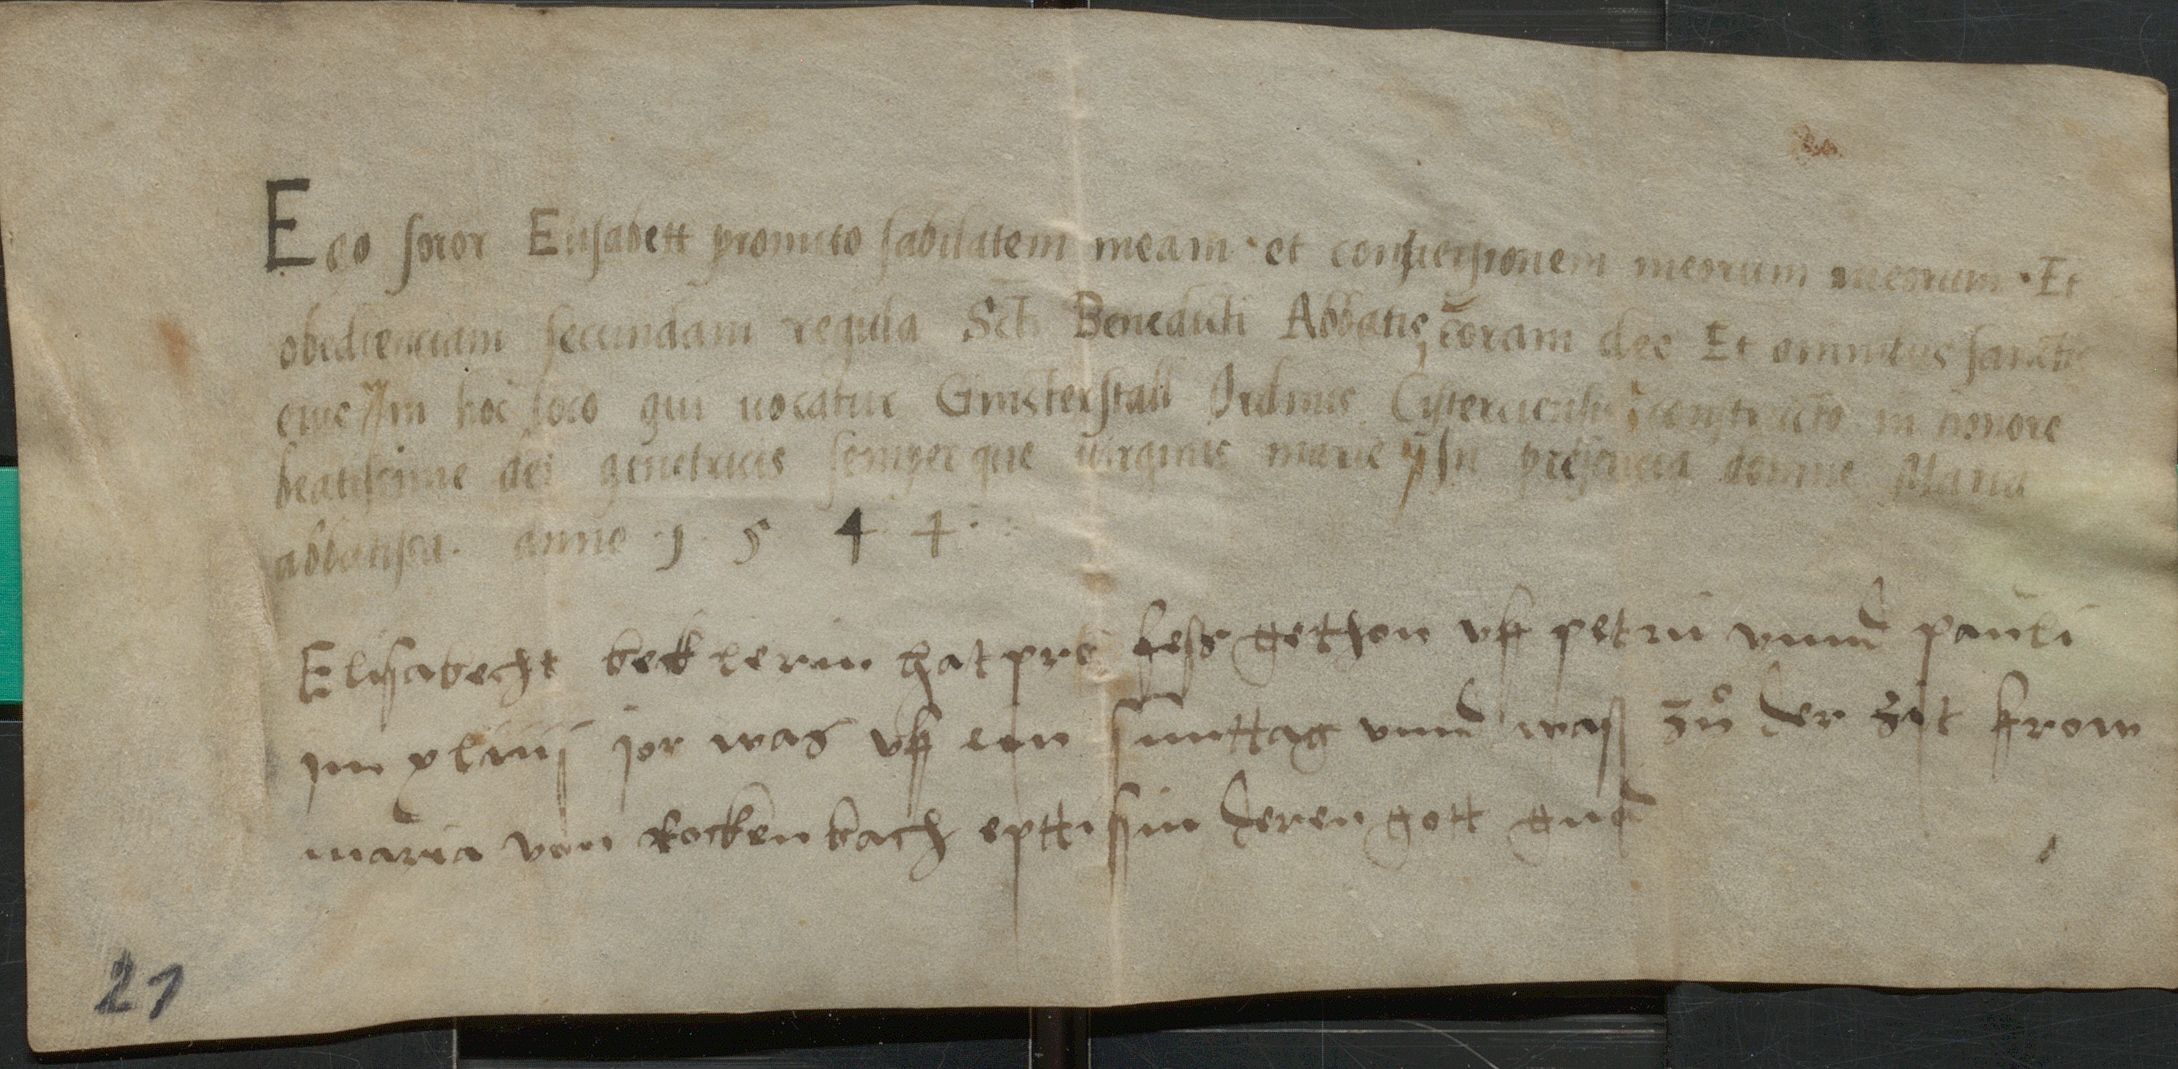 Ego soror Elisabett promitto stabilitatem meam · et conversionem meorum meorum · Et
obedienciam secundam regula Scti Benedicti Abbatis coram deo Et omnibus sanctis
eius In hoc loco qui vocatur Ginterstall Ordinis Cisterciensis constructo in honore
beatissime dei genetricis semper que virginis marie In presencia domine Maria
abbatissa · anno · 1 5 4 4 ·
Elisabecht beklerin hat pro fess gethon uff petri unnd pauli
im xliiij jor was uff ein sunttag unnd waß zů der zit frow
maria von Rockenbach epttissin deren gott gnad
21